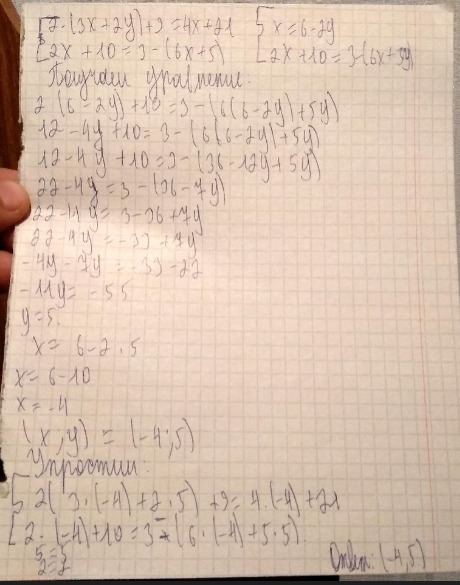 2·(3x+2y)+9=4x+21  x=6-2y
2x+10=3-(6x+5)  2x+10=3-(6x+5y)
Получаем уравнение:
2(6-2y)+10=3-(6(6-2y)+5y)
12-4y+10=3-(6(6-2y)+5y)
12-4y+10=3-(36-12y+5y)
22-4y=3-(36-7y)
22-4y=3-36+7y
22-4y=-33+7y
-4y-7y=-33-22
-11y=-55
y=5.
x=6-2·5
x=6-10
x=-4
(x,y)=(-4;5)
Упростим:
2(3·(-4)+2·5)+9=4·(-4)+21
2·(-4)+10=3-(6·(-4)+5·5)
5=5
2=2
Ответ: (-4,5)